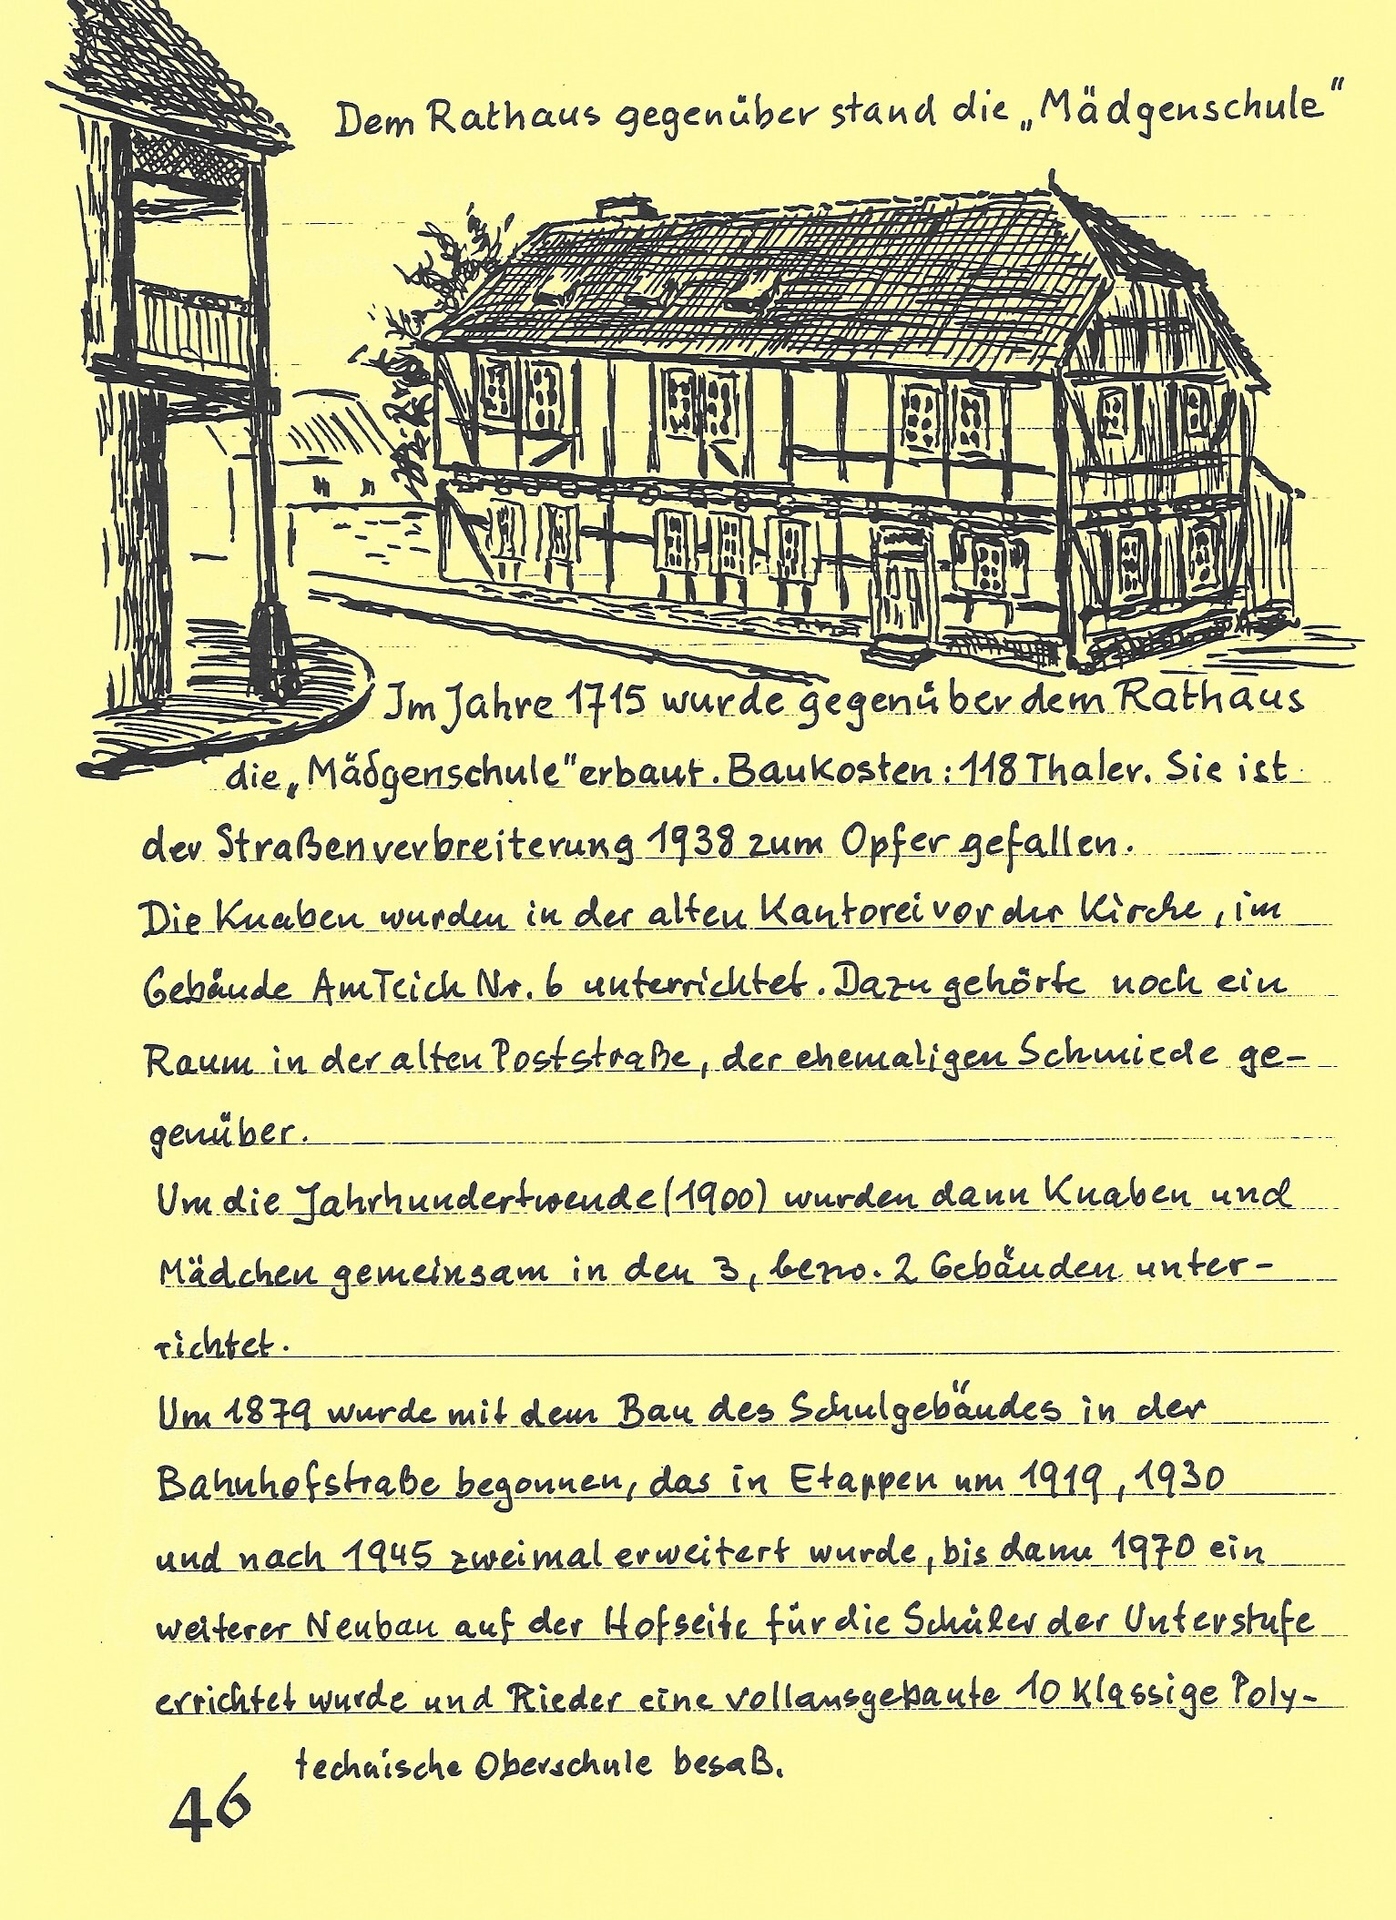 Dem Rathaus gegenüber stand die „Mädgenschule"
Im Jahre 1715 wurde gegenüber dem Rathaus
die „Mädgenschule" erbaut. Baukosten: 118 Thaler. Sie ist
der Straßenverbreiterung 1938 zum Opfer gefallen.
Die Knaben wurden in der alten Kantorei vor der Kirche, im
Gebäude Am Teich Nr. 6 unterrichtet. Dazu gehörte noch ein
Raum in der alten Poststraße, der ehemaligen Schmiede ge-
genüber.
Um die Jahrhundertwende (1900) wurden dann Knaben und
Mädchen gemeinsam in den 3, bezw. 2 Gebäuden unter-
richtet.
Um 1879 wurde mit dem Bau des Schulgebäudes in der
Bahnhofstraße begonnen, das in Etappen um 1919, 1930
und nach 1945 zweimal erweitert wurde, bis dann 1970 ein
weiterer Neubau auf der Hofseite für die Schüler der Unterstufe
errichtet wurde und Rieder eine vollausgebaute 10 klassige Poly-
technische Oberschule besaß.
46